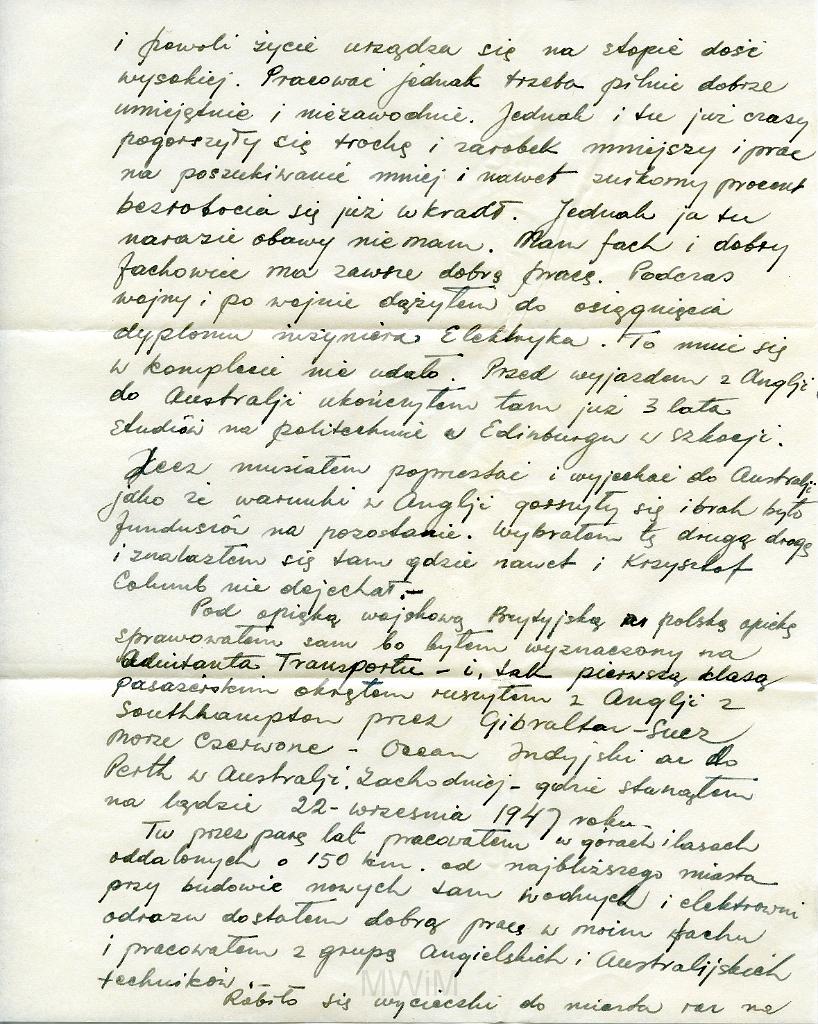 i powoli życie urządza się na stopie dość
wysokiej. Pracować jednak trzeba pilnie dobrze
umiejętnie i niezawodnie. Jednak i tu już czasy
pogorszyły się trochę i zarobek mniejszy i prac
na poszukiwanie mniej i nawet znikomy procent
bezrobocia się już wkradł. Jednak ja tu
narazie obawy nie mam. Mam fach i dobry
fachowiec ma zawsze dobrą pracę. Podczas
wojny i po wojnie dążyłem do osiągnięcia
dyplomu inżyniera Elektryka. To mnie się
w komplecie nie udało. Przed wyjazdem z Anglji
do Australji ukończyłem tam już 3 lata
studiów na politechnice w Edinburgu w Szkocji.
Lecz musiałem poprzestać i wyjechać do Australji
jako że warunki w Anglji gorszyły się i brak było
funduszów na pozostanie. Wybrałem tę drugą drogę
i znalazłem się tam gdzie nawet i Krzysztof
Columb nie dojechał.-
Pod opieką wojskową Brytyjską polską opiekę
sprawowałem sam bo byłem wyznaczony na
Adiutanta Transportu - i tak pierwszą klasą
pasażerskim okrętem ruszyłem z Anglji z
Southhampton przez Gibraltar-Suez
Morze Czerwone - Ocean Indyjski aż do
Perth w Australji Zachodniej - gdzie stanąłem
na lądzie 22-września 1947 roku.
Tu przez parę lat pracowałem w górach i lasach
oddalonych o 150 km. od najbliższego miasta
przy budowie nowych tam wodnych i elektrowni
odrazu dostałem dobrą pracę w moim fachu
i pracowałem z grupą Angielskich i Australijskich
techników.
Robiło się wycieczki do miasta raz na
MWiM